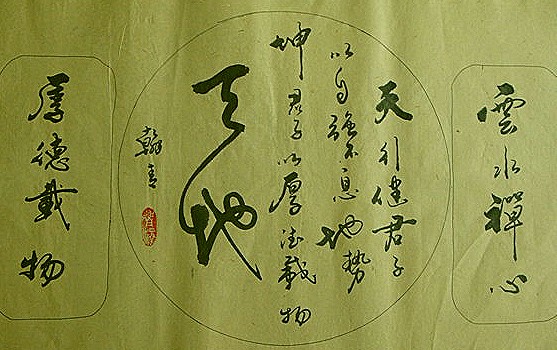 雲水禪心
天行健君子
以自強不息地勢
坤君子以厚德載物
天地
翰青
厚德載物